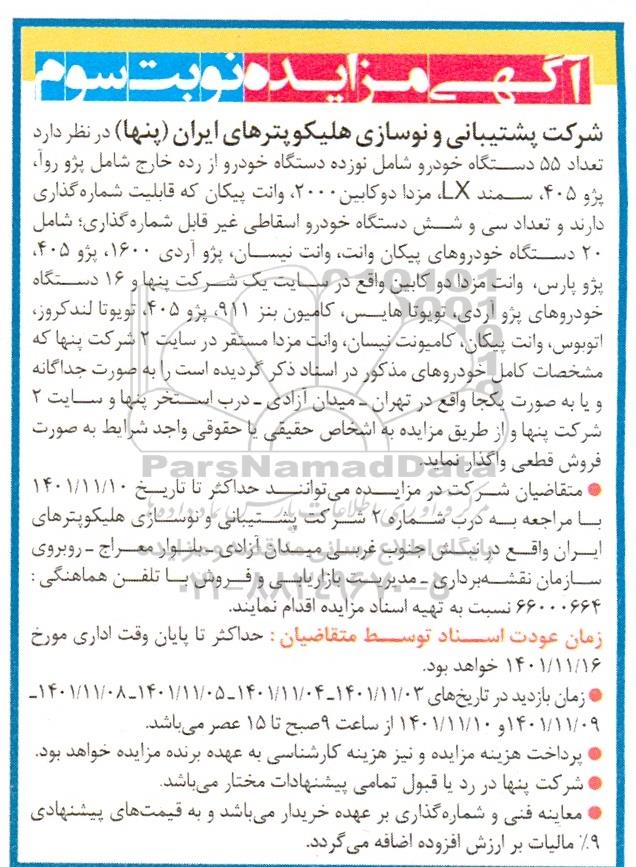 آگهی مزایده نوبت سوم
شرکت پشتیبانی و نوسازی هلیکوپترهای ایران (پنها) در نظر دارد
تعداد ۵۵ دستگاه خودرو شامل نوزده دستگاه خودرو از رده خارج شامل پژو روآ،
پژو ۴۰۵، سمند LX، مزدا دوکابین۲۰۰۰، وانت پیکان که قابلیت شماره‌گذاری
دارند و تعداد سی و شش دستگاه خودرو اسقاطی غیر قابل شماره‌گذاری؛ شامل
۲۰ دستگاه خودروهای پیکان وانت، وانت نیسان، پژو آردی ۱۶۰۰، پژو ۴۰۵،
پژو پارس، وانت مزدا دو کابین واقع در سایت یک شرکت پنها و ۱۶ دستگاه
خودروهای پژو آردی، تویوتا هایس، کامیون بنز ۹۱۱، پژو ۴۰۵، تویوتا لندکروز،
اتوبوس، وانت پیکان، کامیونت نیسان، وانت مزدا مستقر در سایت ۲ شرکت پنها که
مشخصات کامل خودروهای مذکور در اسناد ذکر گردیده است را به صورت جداگانه
و یا به صورت یکجا واقع در تهران ـ میدان آزادی ـ درب استخر پنها و سایت ۲
شرکت پنها و از طریق مزایده به اشخاص حقیقی یا حقوقی واجد شرایط به صورت
فروش قطعی واگذار نماید.
ParsNamadData
● متقاضیان شرکت در مزایده می‌توانند حداکثر تا تاریخ ۱۴۰۱/۱۱/۱۰
با مراجعه به درب شماره ۲ شرکت پشتیبانی و نوسازی هلیکوپترهای
ایران واقع در نبش جنوب غربی میدان آزادی ـ بلوار معراج ـ روبروی
سازمان نقشه‌برداری ـ مدیریت بازاریابی و فروش با تلفن هماهنگی :
۶۶۰۰۰۶۶۴ نسبت به تهیه اسناد مزایده اقدام نمایند.
۰۲۱-۸۸۳۴۹۶۷۰-۵
زمان عودت اسناد توسط متقاضیان : حداکثر تا پایان وقت اداری مورخ
۱۴۰۱/۱۱/۱۶ خواهد بود.
● زمان بازدید در تاریخ‌های ۱۴۰۱/۱۱/۰۳ـ ۱۴۰۱/۱۱/۰۴ـ ۱۴۰۱/۱۱/۰۵ـ ۱۴۰۱/۱۱/۰۸ـ
۱۴۰۱/۱۱/۰۹و ۱۴۰۱/۱۱/۱۰ از ساعت ۹صبح تا ۱۵ عصر می‌باشد.
● پرداخت هزینه مزایده و نیز هزینه کارشناسی به عهده برنده مزایده خواهد بود.
● شرکت پنها در رد یا قبول تمامی پیشنهادات مختار می‌باشد.
● معاینه فنی و شماره‌گذاری بر عهده خریدار می‌باشد و به قیمت‌های پیشنهادی
۹٪ مالیات بر ارزش افزوده اضافه می‌گردد.